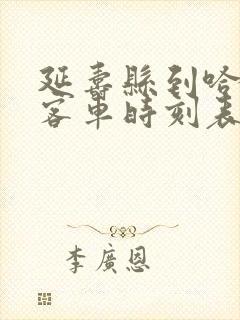 延壽縣到哈
客車時刻表
李廣恩